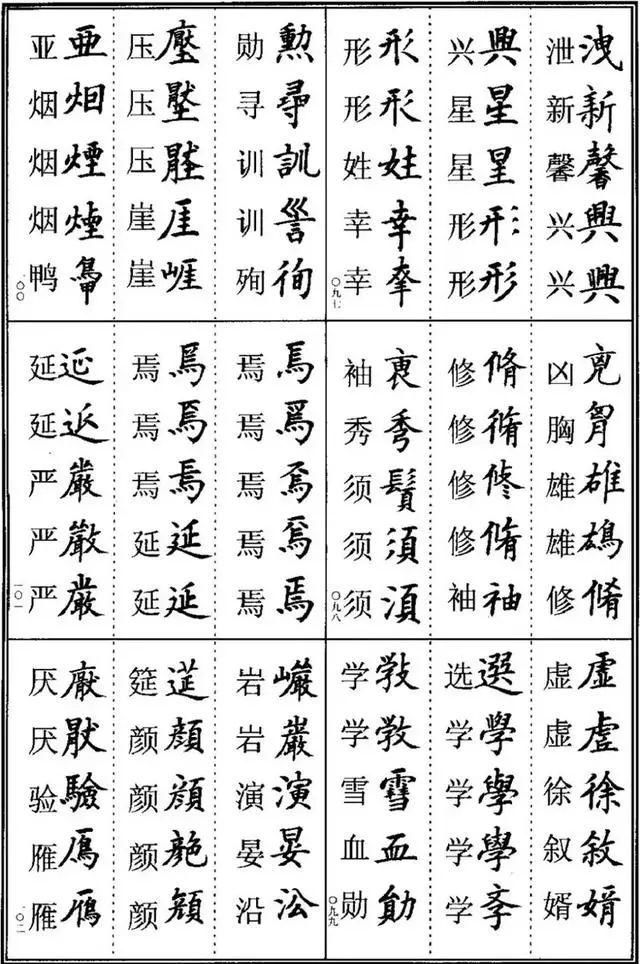 泄 洩
新 新
馨 馨
兴 興
兴 興
兴 興
星 星
星 星
形 形
形 形
形 形
形 形
姓 姓
幸 幸
幸 㚔
〇九七
凶 兇
胸 胷
雄 雄
雄 鴆
修 脩
修 脩
修 脩
修 修
修 脩
袖 袖
袖 裒
秀 秀
须 鬚
须 須
须 湏
〇九八
虚 虛
虚 虗
徐 徐
叙 敘
婿 婿
选 選
学 學
学 學
学 學
学 斈
学 敩
学 教
雪 雪
血 血
勋 勛
〇九九
勋 勲
寻 尋
训 訓
训 𧦝
殉 徇
压 壓
压 壓
压 壓
崖 厓
崖 崕
亚 亞
烟 烟
烟 煙
烟 煙
鸭 鴨
一〇〇
焉 焉
焉 焉
焉 焉
焉 焉
焉 焉
焉 焉
焉 焉
焉 焉
延 延
延 延
延 延
延 延
严 嚴
严 嚴
严 嚴
一〇一
岩 巖
岩 巖
演 演
晏 晏
沿 㳂
筵 莚
颜 顔
颜 顔
颜 顔
颜 顔
厌 厭
厌 猒
验 驗
雁 鴈
雁 鴈
一〇二